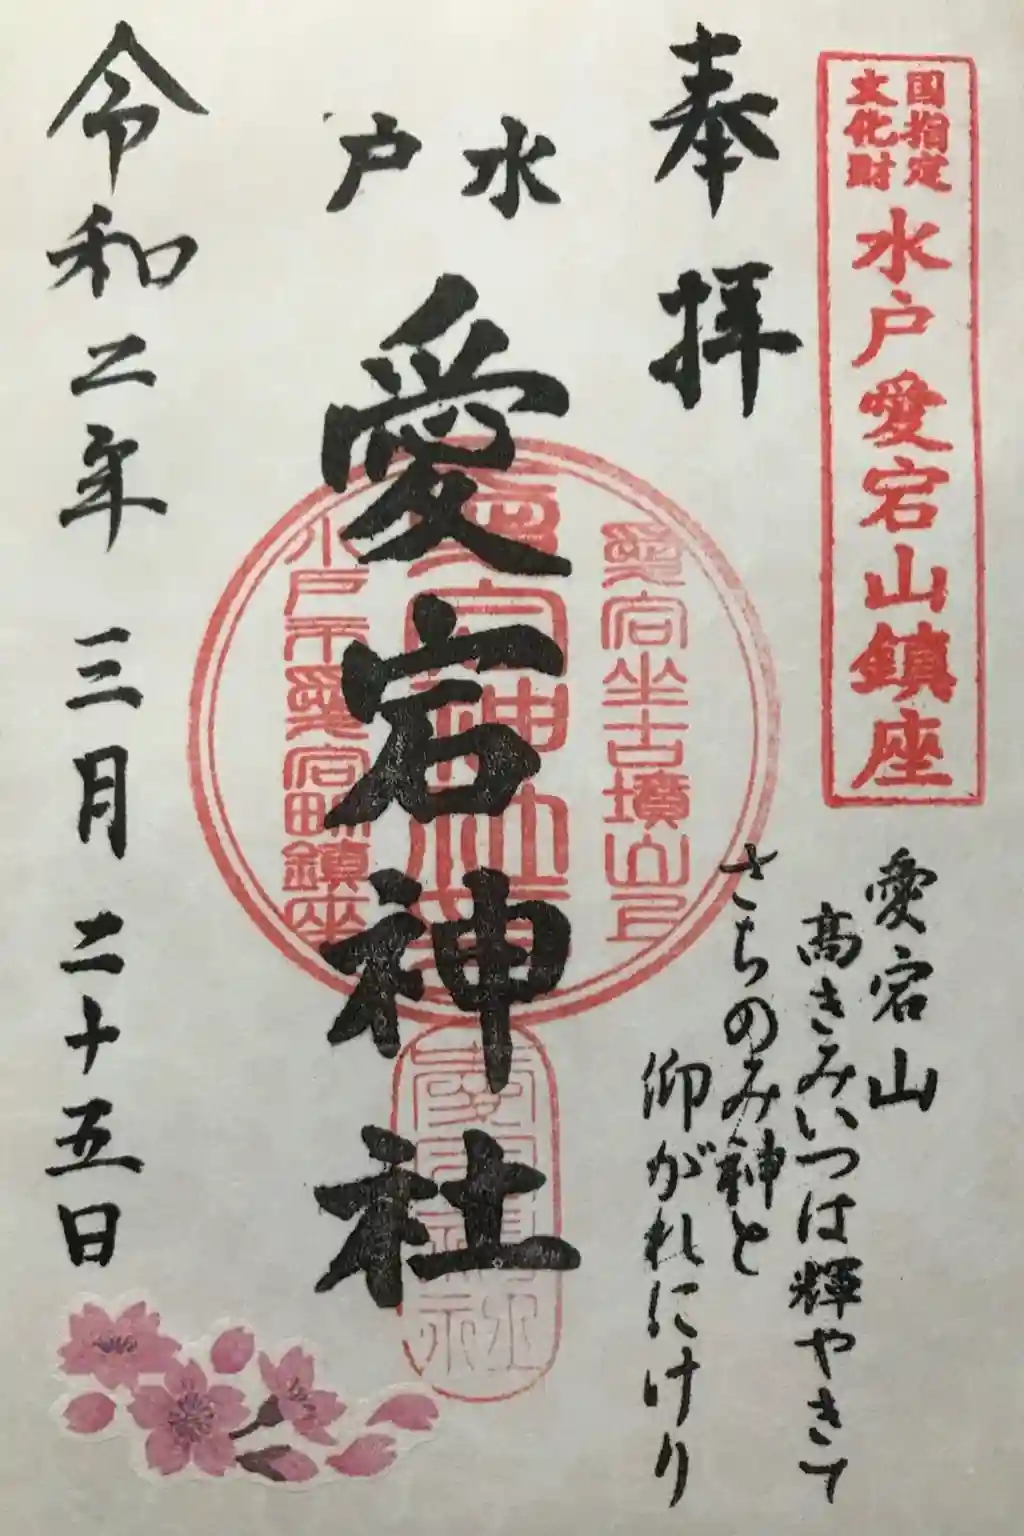 国指定
文化財
水戸愛宕山鎮座
奉拝
愛宕山
高きみいつは輝やきて
さちのみ神と
仰がれにけり
水戸
愛宕神社
愛宕坐古墳山上
愛宕神社
水戸市愛宕町鎮座
令和二年 三月 二十五日